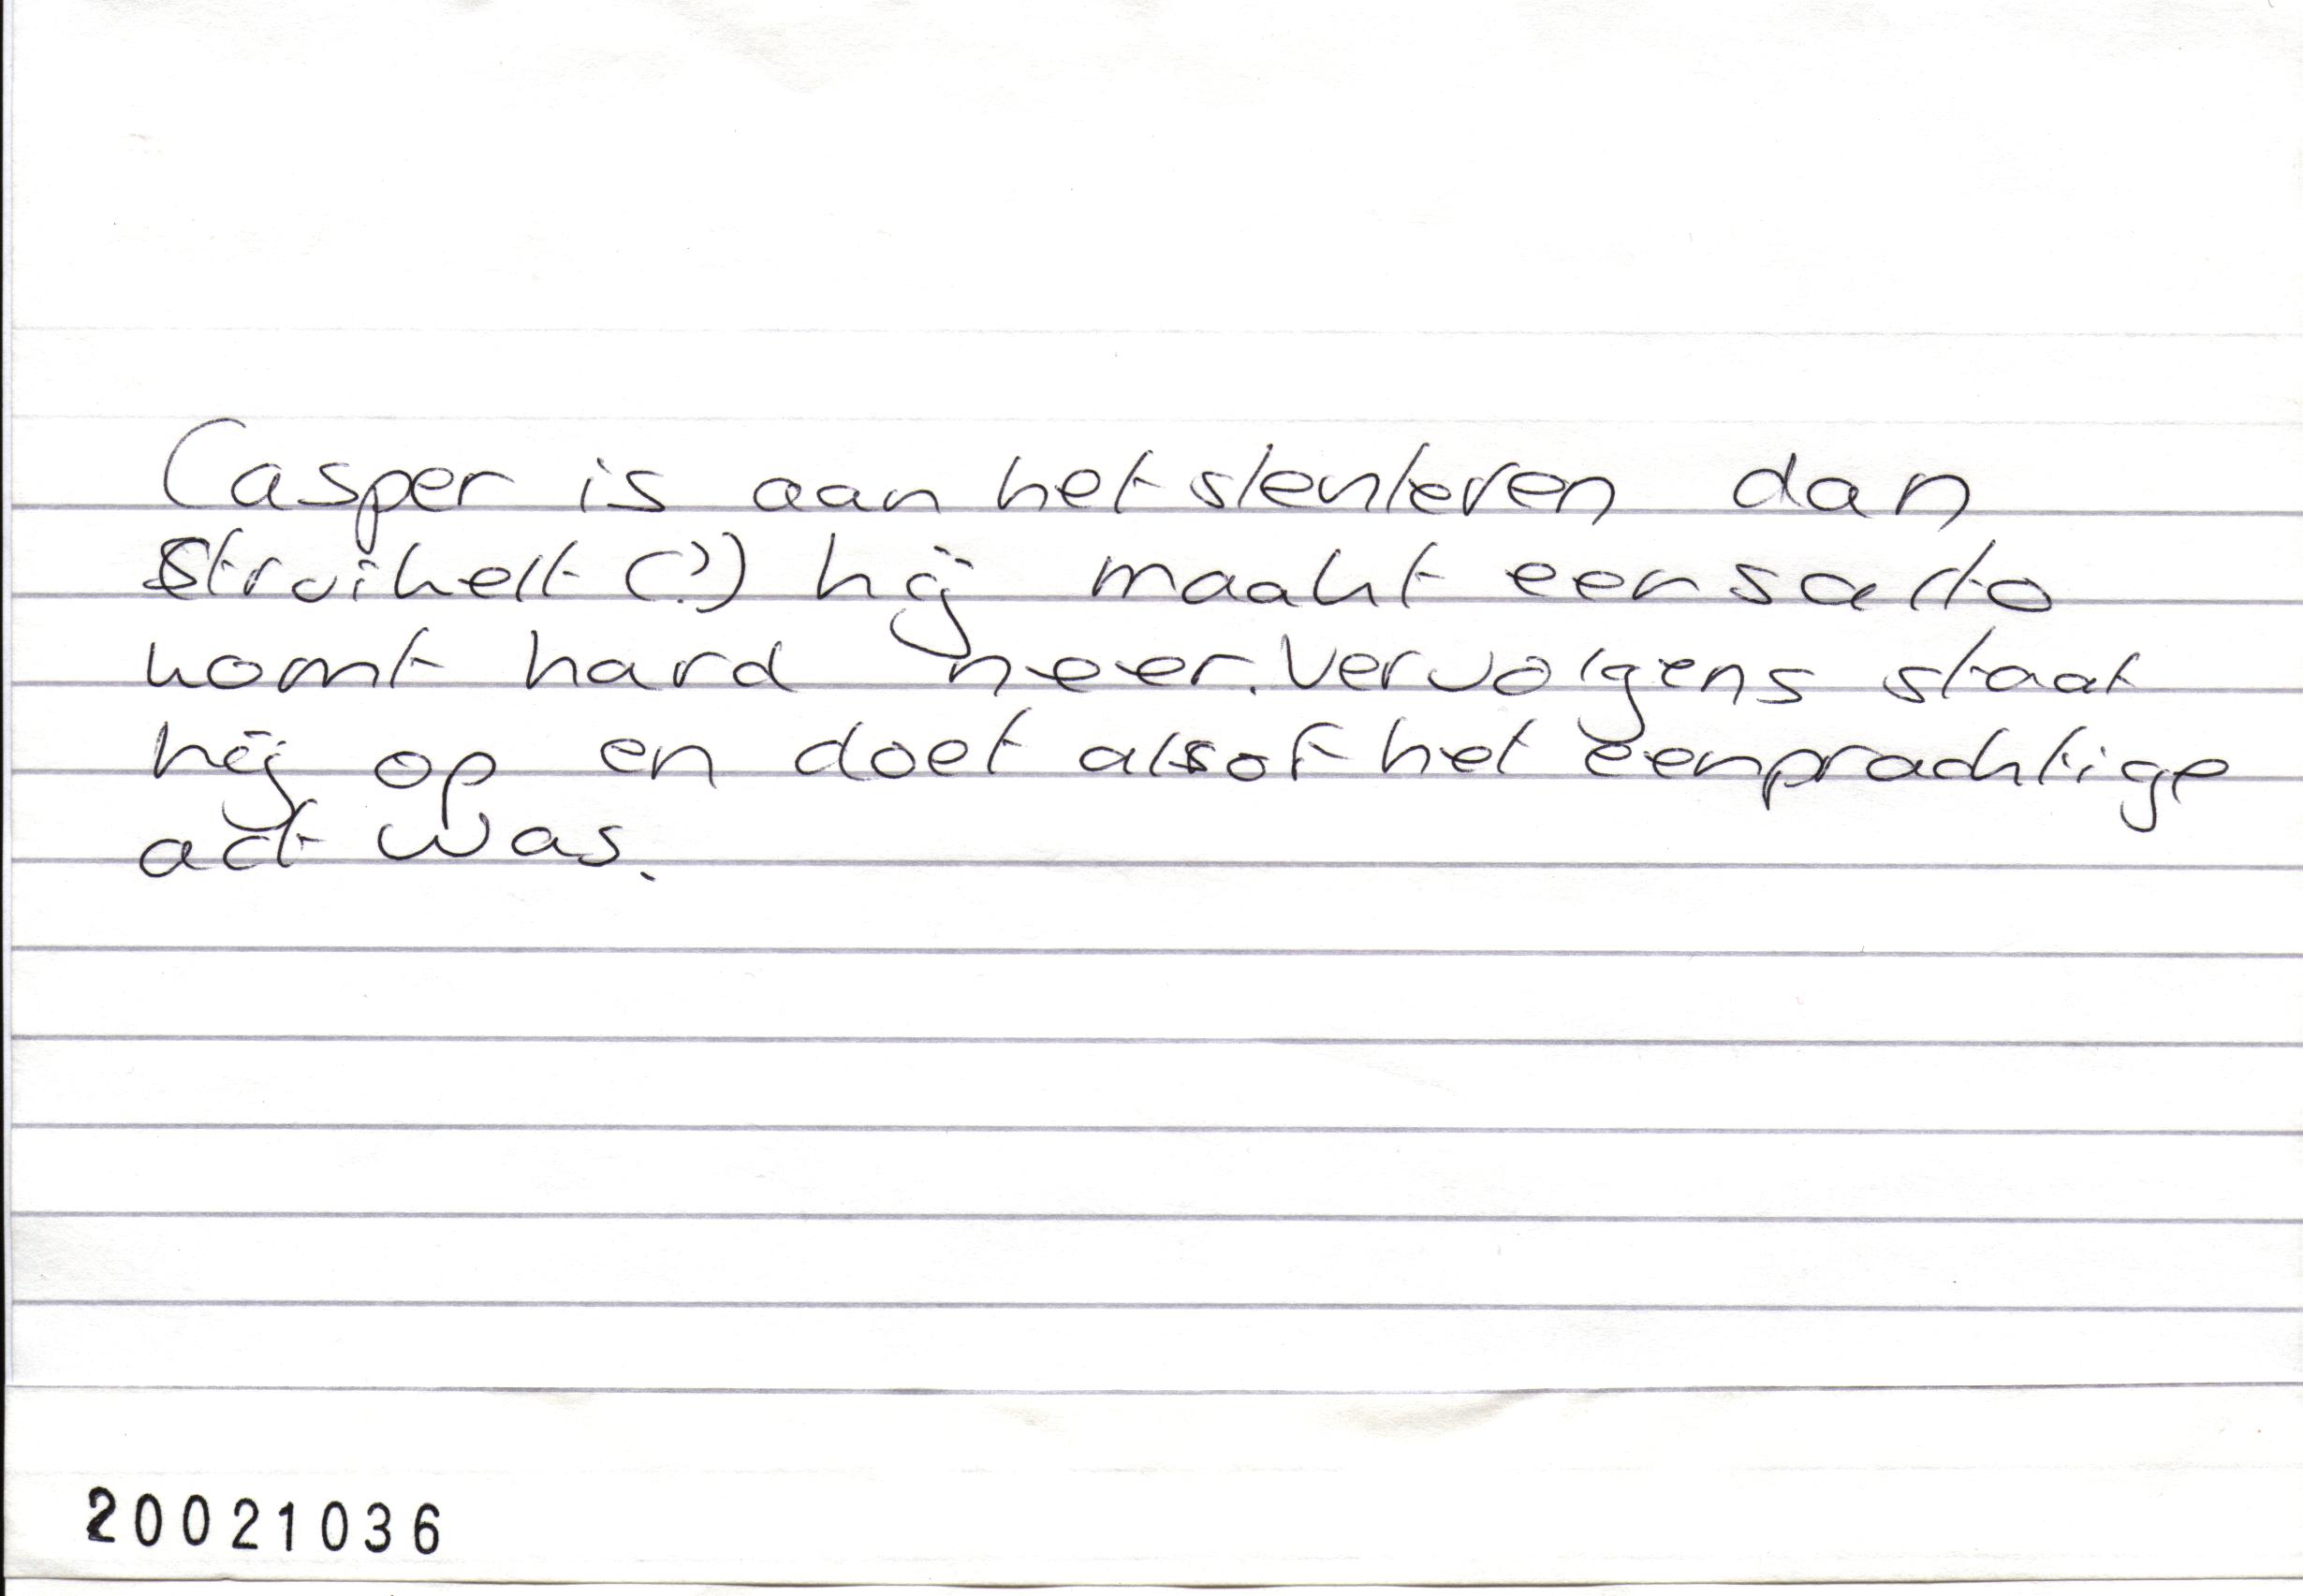 Casper is aan het slenteren dan
struikelt (?) hij maakt een salto
komt hard neer. Vervolgens staat
hij op en doet alsof het een prachtige
act was.
20021036